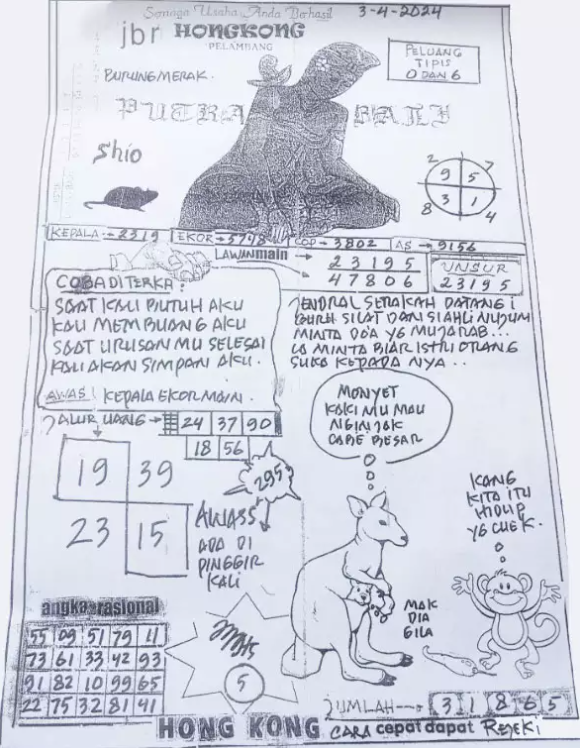 Semoga Usaha Anda Berhasil
3-4-2024
jbr HONGKONG
PELAMBANG
PELUANG
TIPIS
0 DAN 6
BURUNG MERAK.
PUTRA BALI
Shio
2 7
9 5
3 1
8 4
KEPALA → 2319 EKOR → 5748 COP → 3802 AS → 9156
LAWAN main → 23195
47806
UNSUR
23195
COBA DITERKA :
SAAT KAU BUTUH AKU
KAU MEMBUANG AKU
SAAT URUSAN MU SELESAI
KAU AKAN SIMPAN AKU.
AWAS! KEPALA EKOR MAIN.
JENDRAL SERAKAH DATANG I
GURU SILAT DAN SI AHLI NUJUM
MINTA DO'A YG MUJARAB...
IA MINTA BIAR ISTRI ORANG
SUKA KEPADA NYA..
JALUR UANG → 24 37 90
18 56
19 39
23 15
295
AWASS
ADA DI
PINGGIR
KALI
MONYET
KAKI MU MAU
NGINJAK
CABE BESAR
KANG
KITA ITU
HIDUP
YG CUEK.
MAK
DIA
GILA
angka rasional
55 09 51 79 11
73 61 33 42 93
91 82 10 99 65
22 75 32 81 41
5
JUMLAH → 3 1 8 6 5
HONG KONG CARA cepat dapat REJEKI